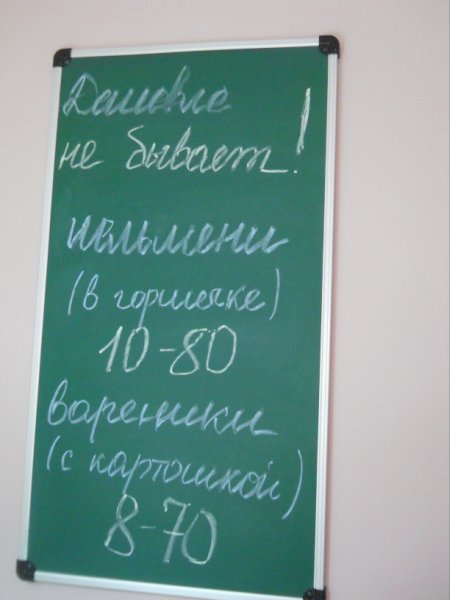 Дешевле
не бывает!
пельмени
(в горшочке)
10-80
вареники
(с картошкой)
8-70